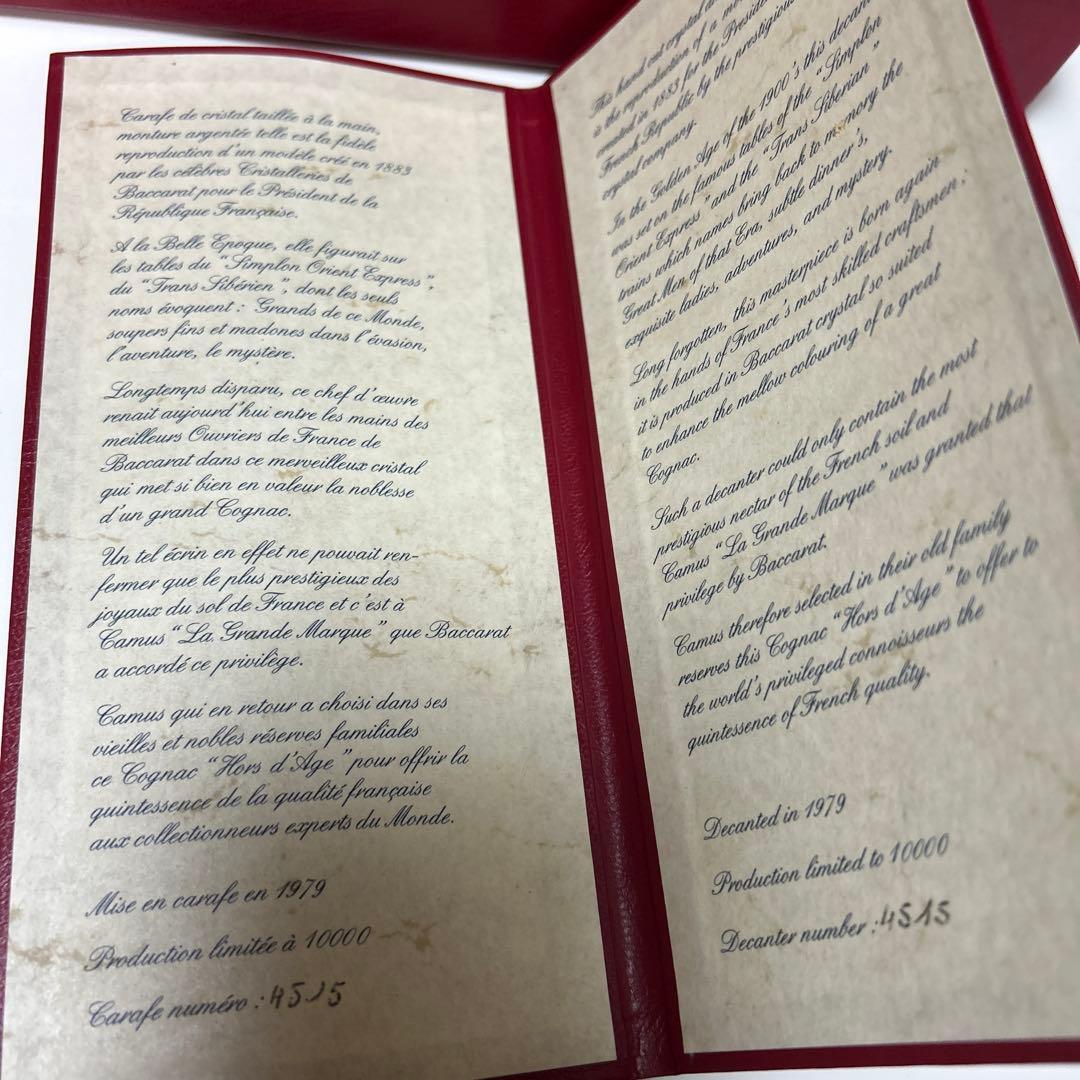 Carafe de cristal taillée à la main,
monture argentée telle est la fidèle
reproduction d'un modèle créé en 1883
par les célèbres Cristalleries de
Baccarat pour le Président de la
République Française.
A la Belle Epoque, elle figurait sur
les tables du "Simplon Orient Express",
du "Trans Sibérien", dont les seuls
noms évoquent : Grands de ce Monde,
soupers fins et madones dans l'évasion,
l'aventure, le mystère.
Longtemps disparu, ce chef d'œuvre
renait aujourd'hui entre les mains des
meilleurs Ouvriers de France de
Baccarat dans ce merveilleux cristal
qui met si bien en valeur la noblesse
d'un grand Cognac.
Un tel écrin en effet ne pouvait ren-
fermer que le plus prestigieux des
joyaux du sol de France et c'est à
Camus "La Grande Marque" que Baccarat
a accordé ce privilège.
Camus qui en retour a choisi dans ses
vieilles et nobles réserves familiales
ce Cognac "Hors d'Age" pour offrir la
quintessence de la qualité française
aux collectionneurs experts du Monde.
Mise en carafe en 1979
Production limitée à 10000
Carafe numéro : 4515
This hand cut crystal
is the reproduction of a
created in 1883 for the President
French Republic by the prestigious
crystal company.
In the Golden Age of the 1900's this
was set on the famous tables of the "Simplon
Orient Express" and the "Trans Siberian"
trains which names bring back to memory the
Great Men of that Era, subtle dinner's,
exquisite ladies, adventures, and mystery.
Long forgotten, this masterpiece is born again
in the hands of France's most skilled craftsmen :
it is produced in Baccarat crystal so suited
to enhance the mellow colouring of a great
Cognac.
Such a decanter could only contain the most
prestigious nectar of the French soil and
Camus "La Grande Marque" was granted that
privilege by Baccarat.
Camus therefore selected in their old family
reserves this Cognac "Hors d'Age" to offer to
the world's privileged connoisseurs the
quintessence of French quality.
Decanted in 1979
Production limited to 10000
Decanter number : 4515